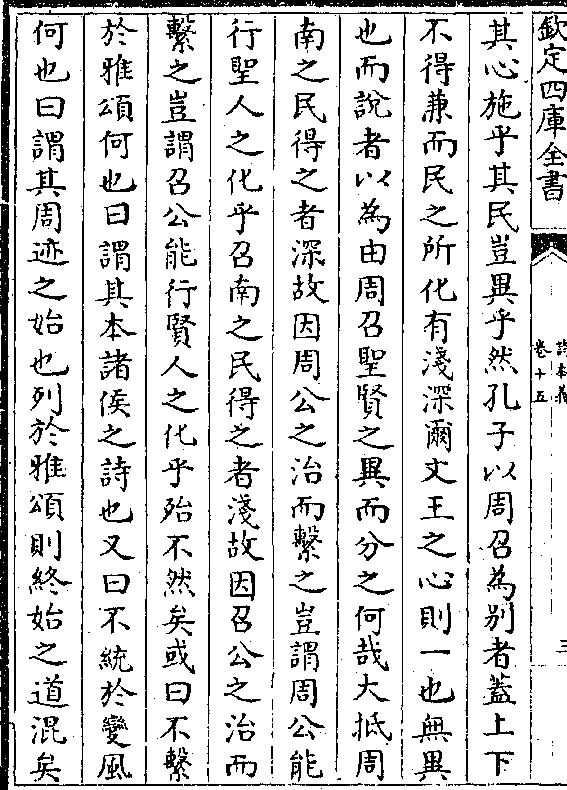 欽定四庫全書
詩本義
卷十五
三
其心施乎其民豈異乎然孔子以周召為别者蓋上下
不得兼而民之所化有淺深爾文王之心則一也無異
也而說者以為由周召聖賢之異而分之何哉大抵周
南之民得之者深故因周公之治而繫之豈謂周公能
行聖人之化乎召南之民得之者淺故因召公之治而
繫之豈謂召公能行賢人之化乎殆不然矣或曰不繫
於雅頌何也曰謂其本諸侯之詩也又曰不統於變風
何也曰謂其周迹之始也列於雅頌則終始之道混矣